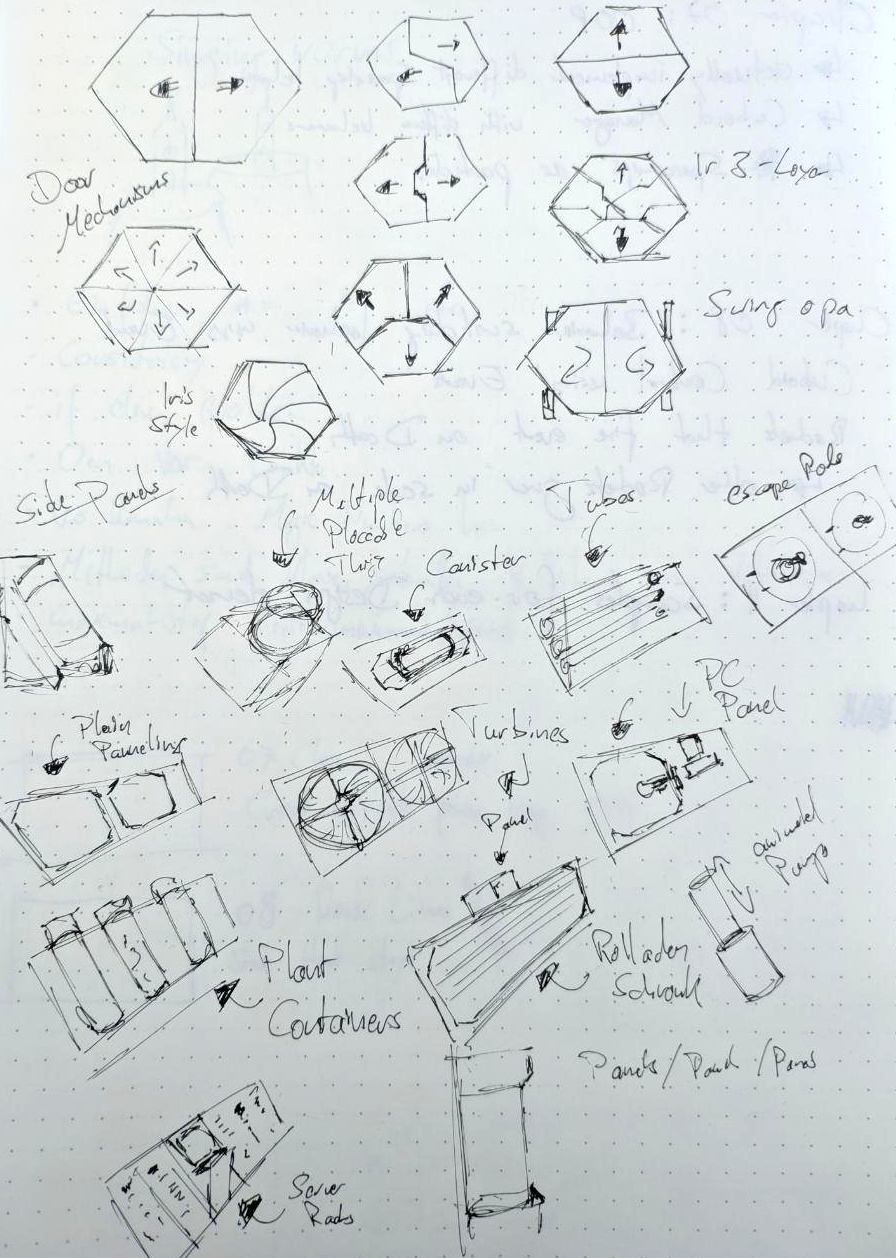 Door
Mechanisms
3-Layer
Swing open
Iris
Style
Side Panels
Multiple
Placable
Things
Canister
Tubes
escape Pole
Plain
Paneling
Turbines
PC
Panel
Panel
Pump
Plant
Containers
Rolladen
Schrank
Panels / Panel / Panels
Server
Racks